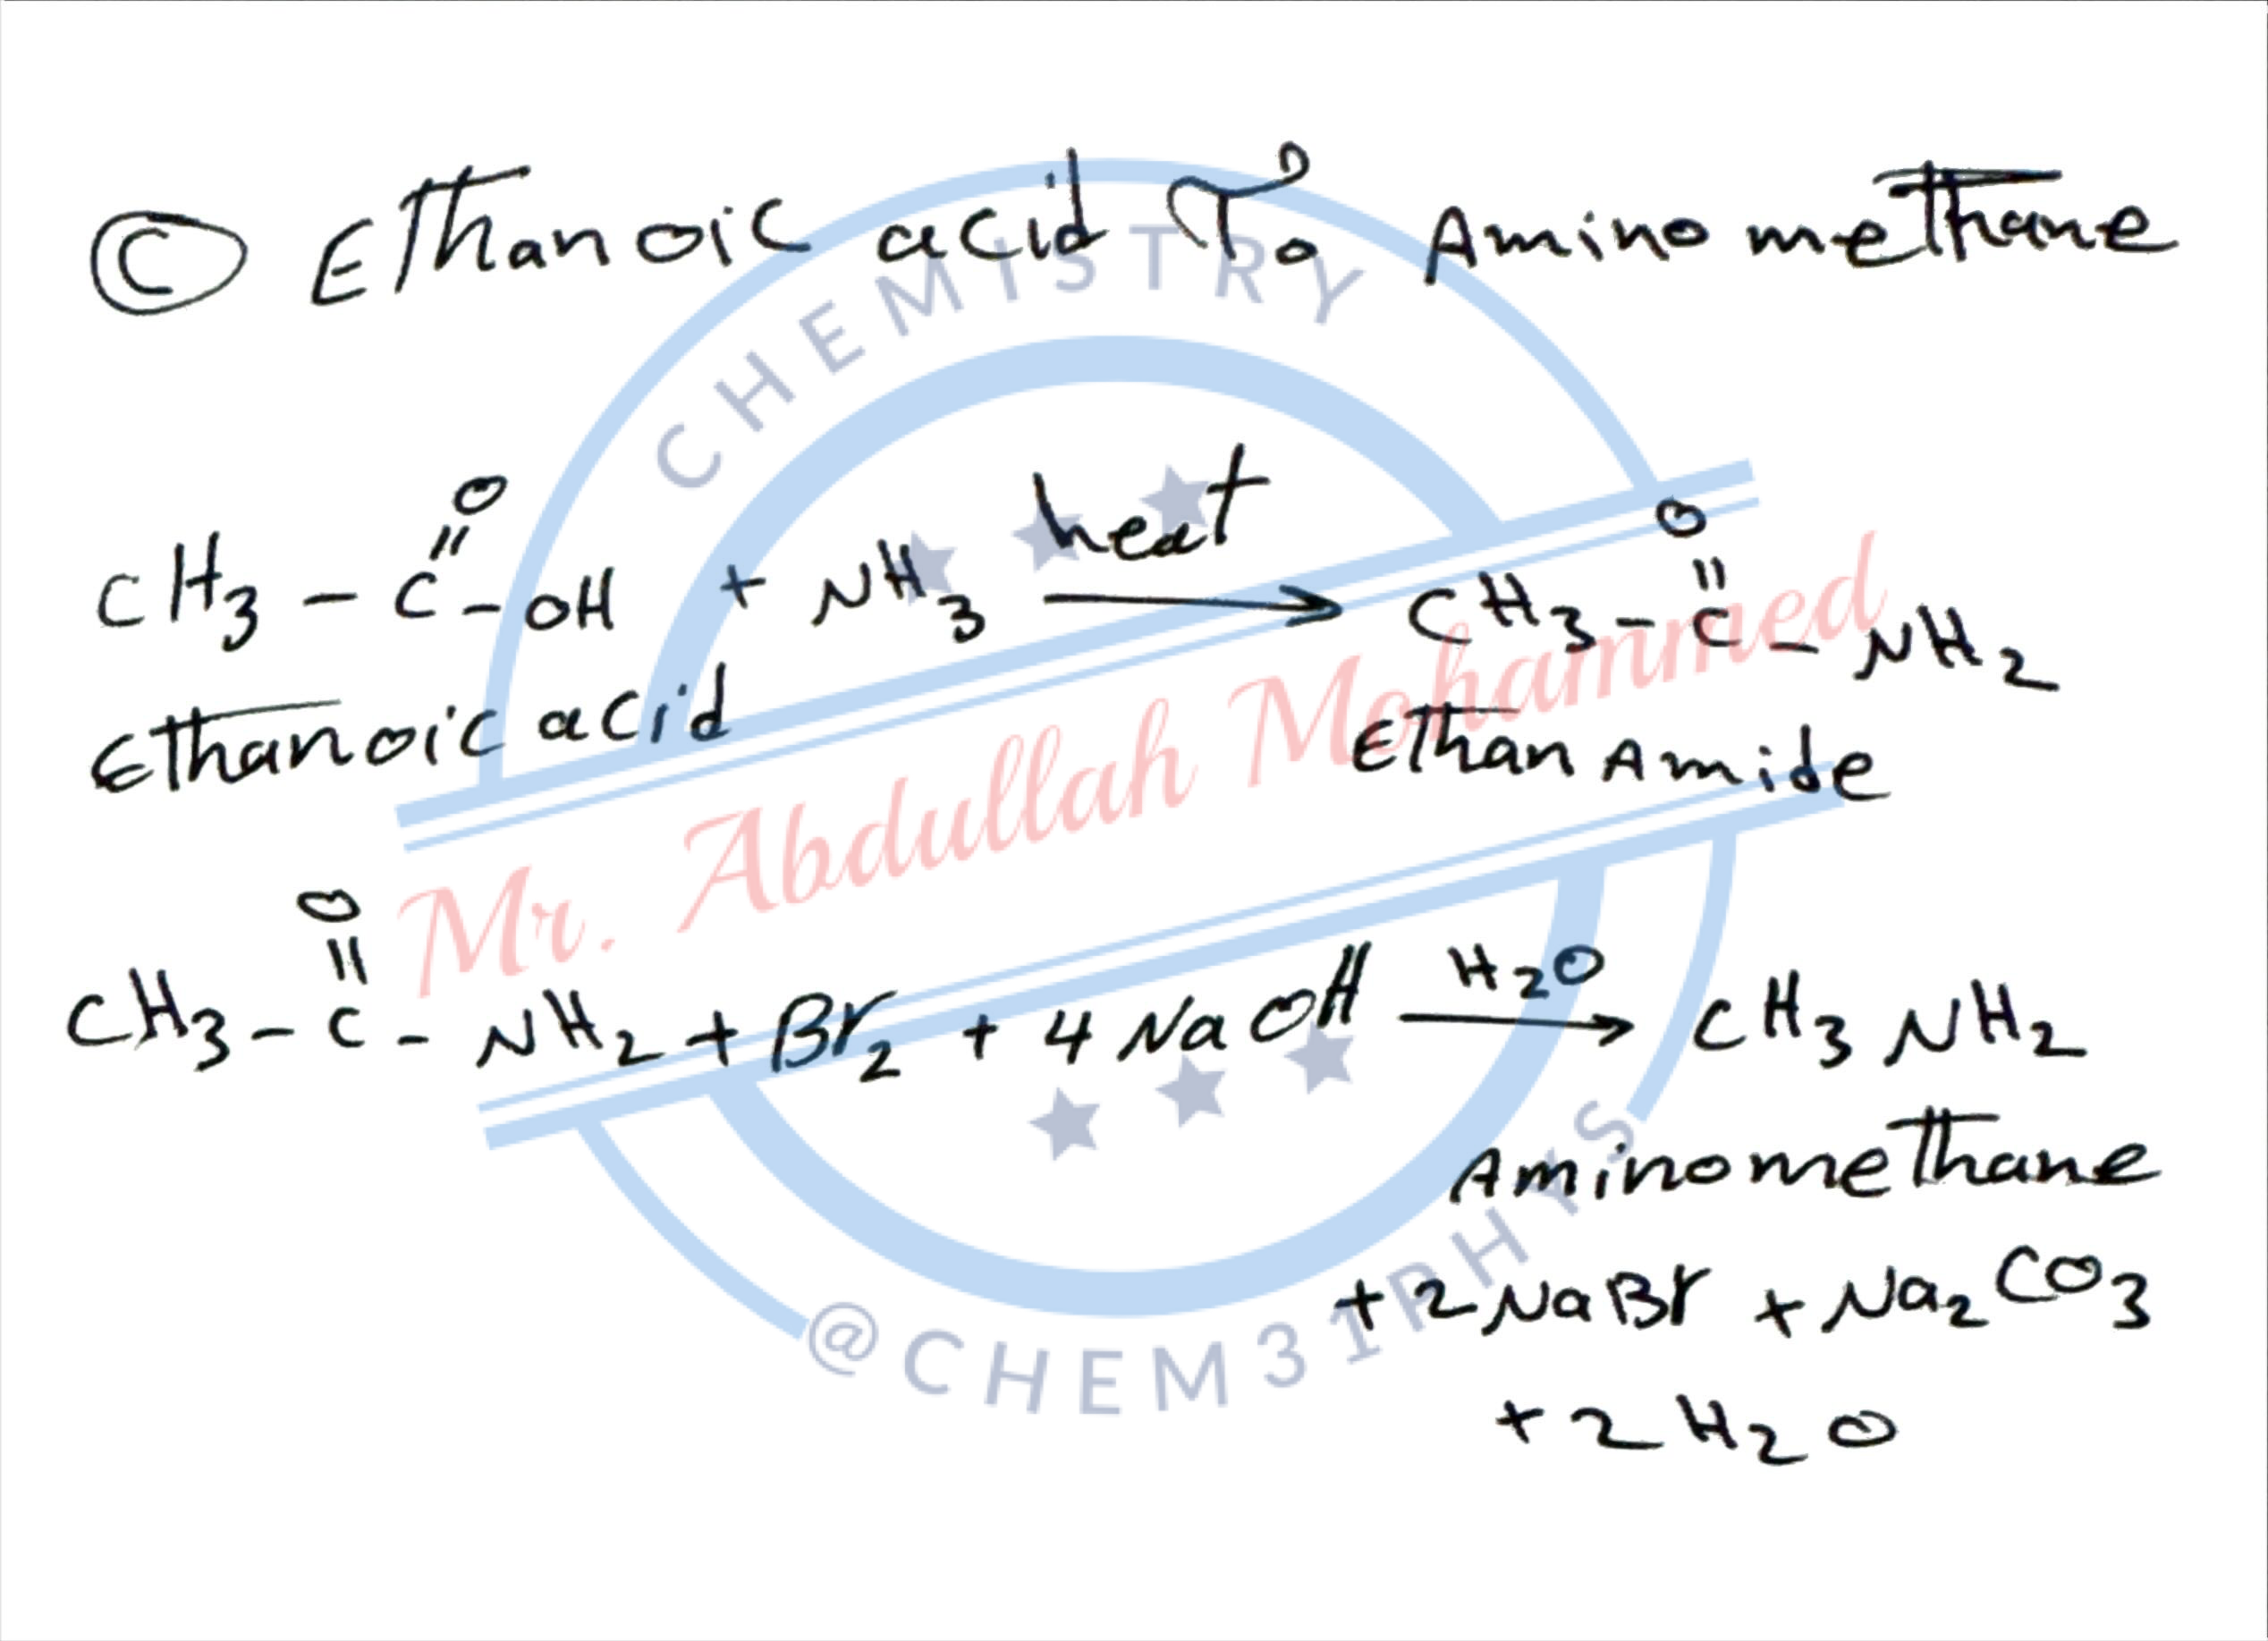 Ⓒ Ethanoic acid To Aminomethane
CHEMISTRY
O
||
CH3 - C - OH + NH3 heat → CH3 - C - NH2
O
||
Ethanoic acid
EthanAmide
Mr. Abdullah Mohammed
O
||
CH3 - C - NH2 + Br2 + 4 NaOH H2O → CH3NH2
Aminomethane
+ 2 NaBr + Na2CO3
+ 2 H2O
@CHEM31PHYS